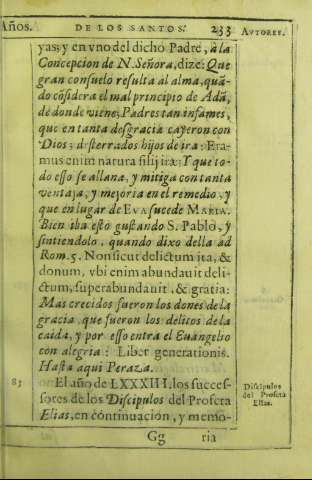 Años. DE LOS SANTOS. 233 AVTORES.
yas; y en vno del dicho Padre, à la
Concepcion de N. Señora, dize: Que
gran consuelo resulta al alma, quã-
do cõsidera el mal principio de Adã,
de donde viene; Padres tan infames,
que en tanta desgracia cayeron con
Dios; desterrados hijos de ira: Era-
mus enim natura filij iræ; Y que to-
do esso se allana, y mitiga con tanta
ventaja, y mejoria en el remedio, y
que en lugar de EVA sucede MARIA.
Bien iba esto gustando S. Pablo, y
sintiendolo, quando dixo della ad
Rom. 5. Non sicut delictum ita, &
donum, vbi enim abundauit deli-
ctum, superabundauit, & gratia:
Mas crecidos fueron los dones de la
gracia, que fueron los delitos de la
caida, y por esso entra el Euangelio
con alegria: Liber generationis.
Hasta aqui Peraza.
83 El año de LXXXIII, los succes-
sores de los Discipulos del Profeta
Elias, en continuacion, y memo-
Discipulos
del Profeta
Elias.
Gg ria